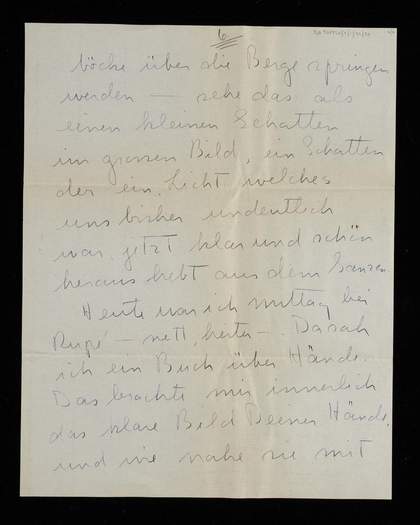 6
böcke über die Berge springen
werden — sehe das als
einen kleinen Schatten
im grossen Bild, ein Schatten
der ein Licht welches
uns bisher undeutlich
war jetzt klar und schön
heraus hebt aus dem Ganzen.
Heute war ich mittag bei
Rupé — nett, heiter —. Da sah
ich ein Buch über Hände.
Das brachte mir innerlich
das klare Bild Deiner Hände,
und wie nahe sie mit